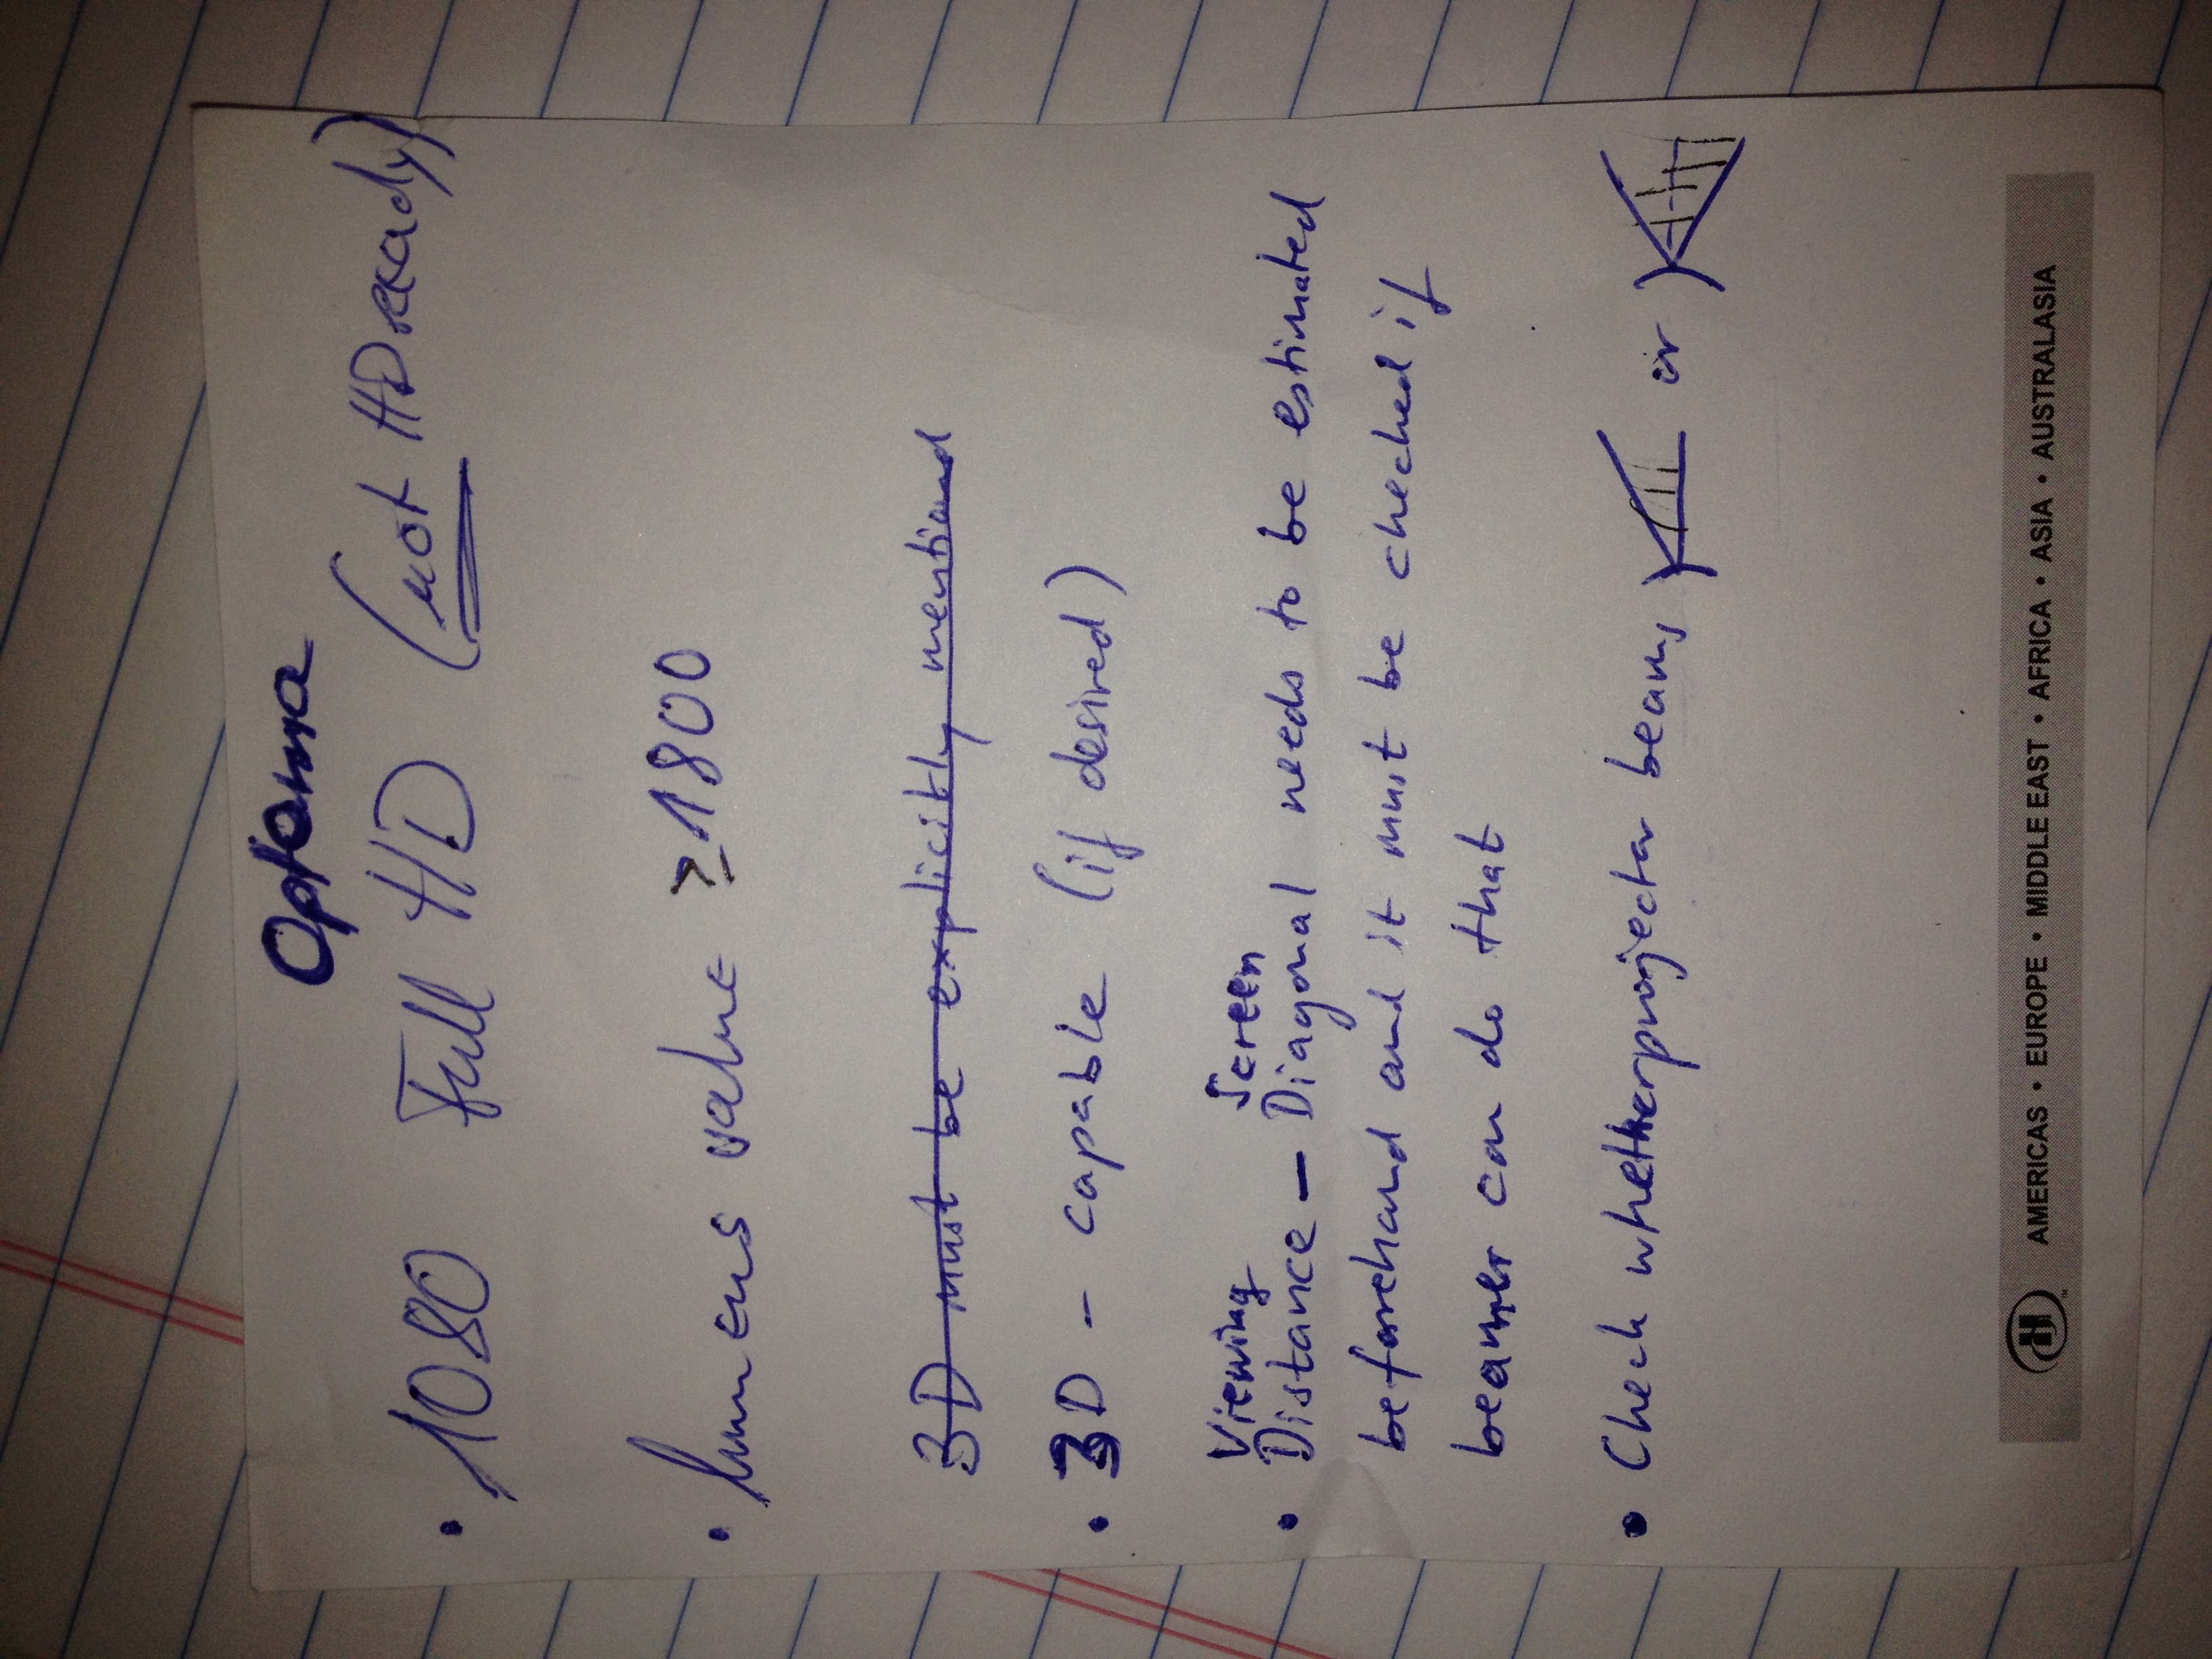 Optoma
• 1080 Full HD (not HD ready)
• lumens value ≥1800
3D must be explicitly mentioned
• 3D - capable (if desired)
Viewing Screen
• Distance - Diagonal needs to be estimated
beforehand and it must be checked if
beamer can do that
• Check whether projector beams or
AMERICAS • EUROPE • MIDDLE EAST • AFRICA • ASIA • AUSTRALASIA